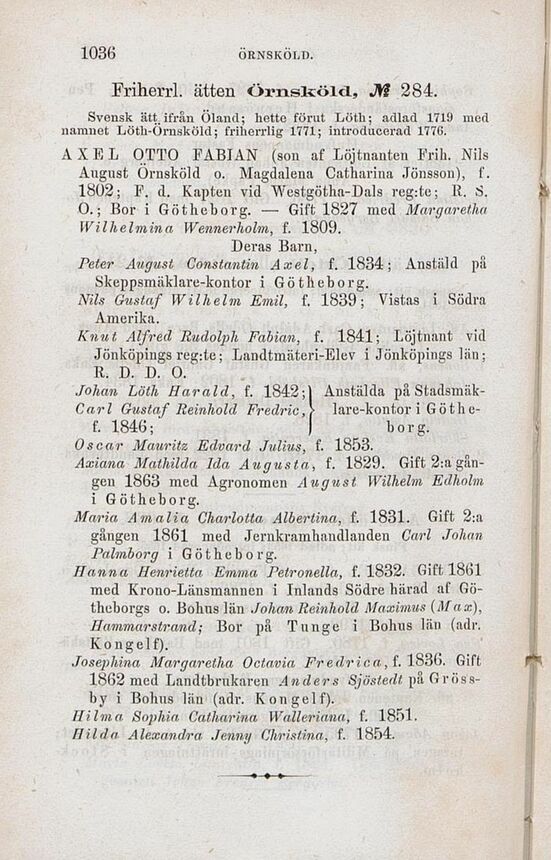 1036 ÖRNSKÖLD.
Friherrl. ätten Örnsköld, № 284.
Svensk ätt ifrån Öland; hette förut Löth; adlad 1719 med
namnet Löth-Örnsköld; friherrlig 1771; introducerad 1776.
AXEL OTTO FABIAN (son af Löjtnanten Frih. Nils
August Örnsköld o. Magdalena Catharina Jönsson), f.
1802; F. d. Kapten vid Westgötha-Dals reg:te; R. S.
O.; Bor i Götheborg. — Gift 1827 med Margaretha
Wilhelmina Wennerholm, f. 1809.
Deras Barn,
Peter August Constantin Axel, f. 1834; Anstäld på
Skeppsmäklare-kontor i Götheborg.
Nils Gustaf Wilhelm Emil, f. 1839; Vistas i Södra
Amerika.
Knut Alfred Rudolph Fabian, f. 1841; Löjtnant vid
Jönköpings reg:te; Landtmäteri-Elev i Jönköpings län;
R. D. D. O.
Johan Löth Harald, f. 1842; } Anstälda på Stadsmäk-
Carl Gustaf Reinhold Fredric, lare-kontor i Göthe-
f. 1846; borg.
Oscar Mauritz Edvard Julius, f. 1853.
Axiana Mathilda Ida Augusta, f. 1829. Gift 2:a gån-
gen 1863 med Agronomen August Wilhelm Edholm
i Götheborg.
Maria Amalia Charlotta Albertina, f. 1831. Gift 2:a
gången 1861 med Jernkramhandlanden Carl Johan
Palmborg i Götheborg.
Hanna Henrietta Emma Petronella, f. 1832. Gift 1861
med Krono-Länsmannen i Inlands Södre härad af Gö-
theborgs o. Bohus län Johan Reinhold Maximus (Max),
Hammarstrand; Bor på Tunge i Bohus län (adr.
Kongelf).
Josephina Margaretha Octavia Fredrica, f. 1836. Gift
1862 med Landtbrukaren Anders Sjöstedt på Gröss-
by i Bohus län (adr. Kongelf).
Hilma Sophia Catharina Walleriana, f. 1851.
Hilda Alexandra Jenny Christina, f. 1854.